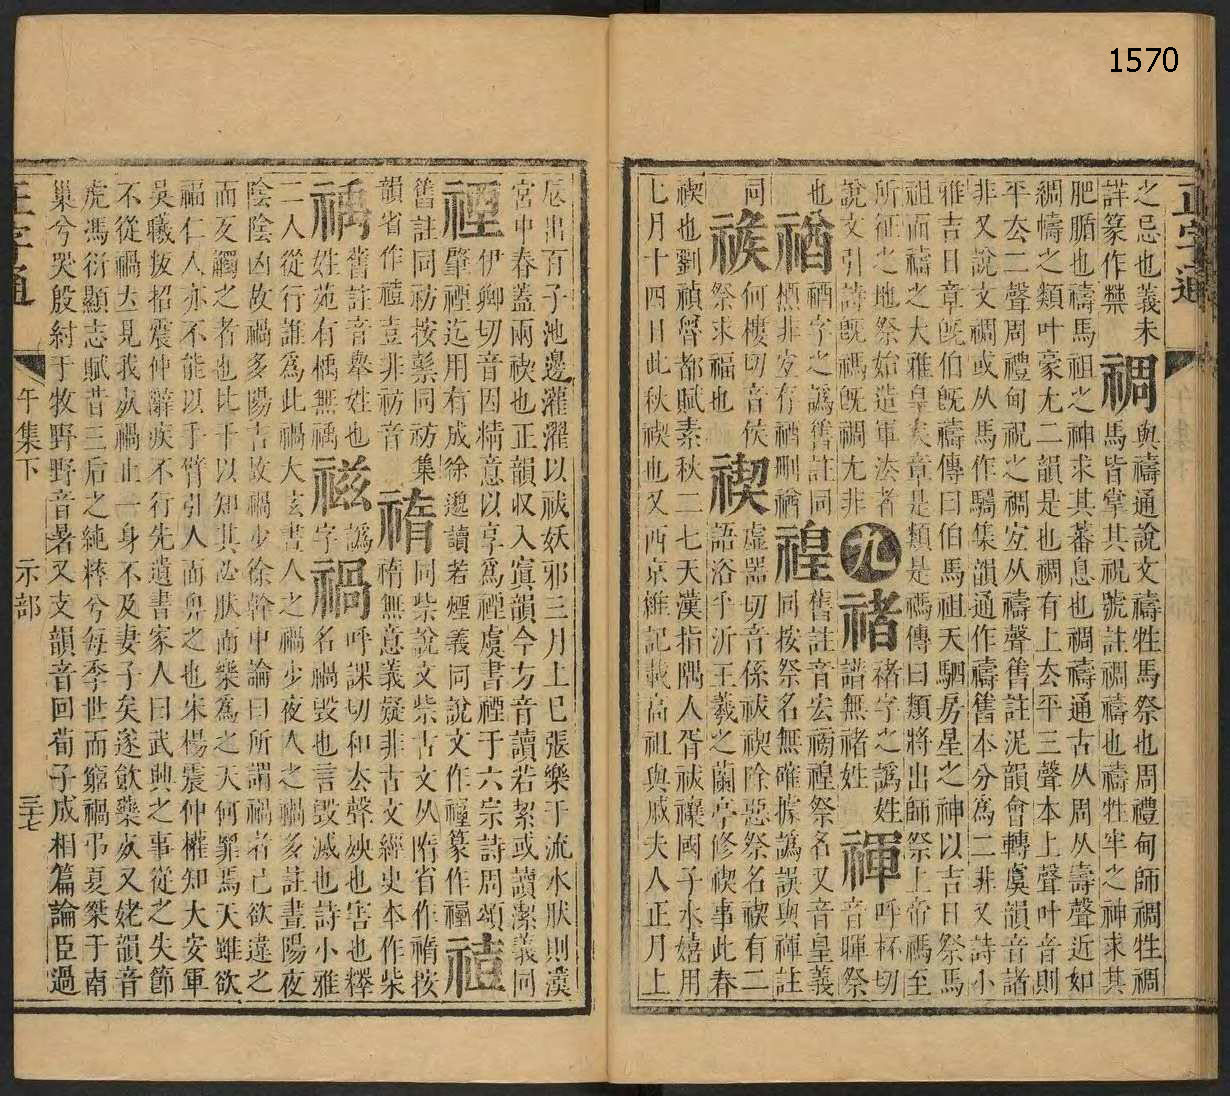 1570
正字通
之忌也義未
詳篆作禁
禂
與禱通說文禱牲馬祭也周禮甸師禂牲禂
馬皆掌其祝號註禂禱也禱牲牢之神求其
肥腯也禱馬祖之神求其蕃息也禂禱通古从周从壽聲近如
綢幬之類叶豪尤二韻是也禂有上去平三聲本上聲叶音則
平去二聲周禮甸祝之禂宜从禱聲舊註泥韻會轉虞韻音誅
非又說文禂或从馬作騳集韻通作禱舊本分爲二非又詩小
雅吉日章旣伯旣禱傳曰伯馬祖天駟房星之神以吉日祭馬
祖而禱之大雅皇矣章是類是禡傳曰類將出師祭上帝禡至
所征之地祭始造軍法者
說文引詩旣禡旣禂尤非
九
禇
褚字之譌姓
譜無禇姓
禈
呼杯切
音暉祭
也
禉
禉字之譌舊註同
槱非宜存禉刪禉
禋
舊註音宏禓禋祭名又音皇義
同按祭名無確據譌誤與禈註
同
禠
何樓切音侯
祭求福也
禊
虛器切音係祓禊除惡祭名禊有二
論語浴乎沂王羲之蘭亭修禊事此春
禊也劉禎魯都賦素秋二七天漢指隅人胥祓禳國子水嬉用
七月十四日此秋禊也又西京雜記載高祖與戚夫人正月上
辰出百子池邊灌濯以祓妖邪三月上巳張樂于流水肰則漢
宮中春蓋兩禊也正韻收入䆠韻今方音讀若絜或讀潔義同
禋
伊卿切音因精意以享爲禋虞書禋于六宗詩周頌
肇禋迄用有成徐邈讀若煙義同說文作禋篆作禋
禃
舊註同祊按䰞同祊集
韻省作禃壴非祊音
禙
同祡說文祡古文从隋省作禙按
禙無意義疑非古文經史本作柴
禑
舊註音舉姓也
姓苑有楀無禑
禌
譌
字
禍
呼課切和去聲殃也害也釋
名禍毀也言毀滅也詩小雅
二人從行誰爲此禍大玄晝人之禍少夜人之禍多註晝陽夜
陰陰凶故禍多陽吉故禍少徐幹中論曰所謂禍者己欲違之
而反觸之者也比干以知其必肰而樂爲之天何罪焉天雖欲
福仁人亦不能以手臂引人而與之也宋楊震仲權知大安軍
吳曦叛招震仲辭疾不行先遺書家人曰武興之事從之失節
不從禍立見我死禍止一身不及妻子矣遂飮藥死又姥韻音
虎馮衍顯志賦昔三后之純粹兮每季世而窮禍弔夏桀于南
巢兮哭殷紂于牧野野音暑又支韻音回荀子成相篇論臣過
正字通
午集下
示部
三十七